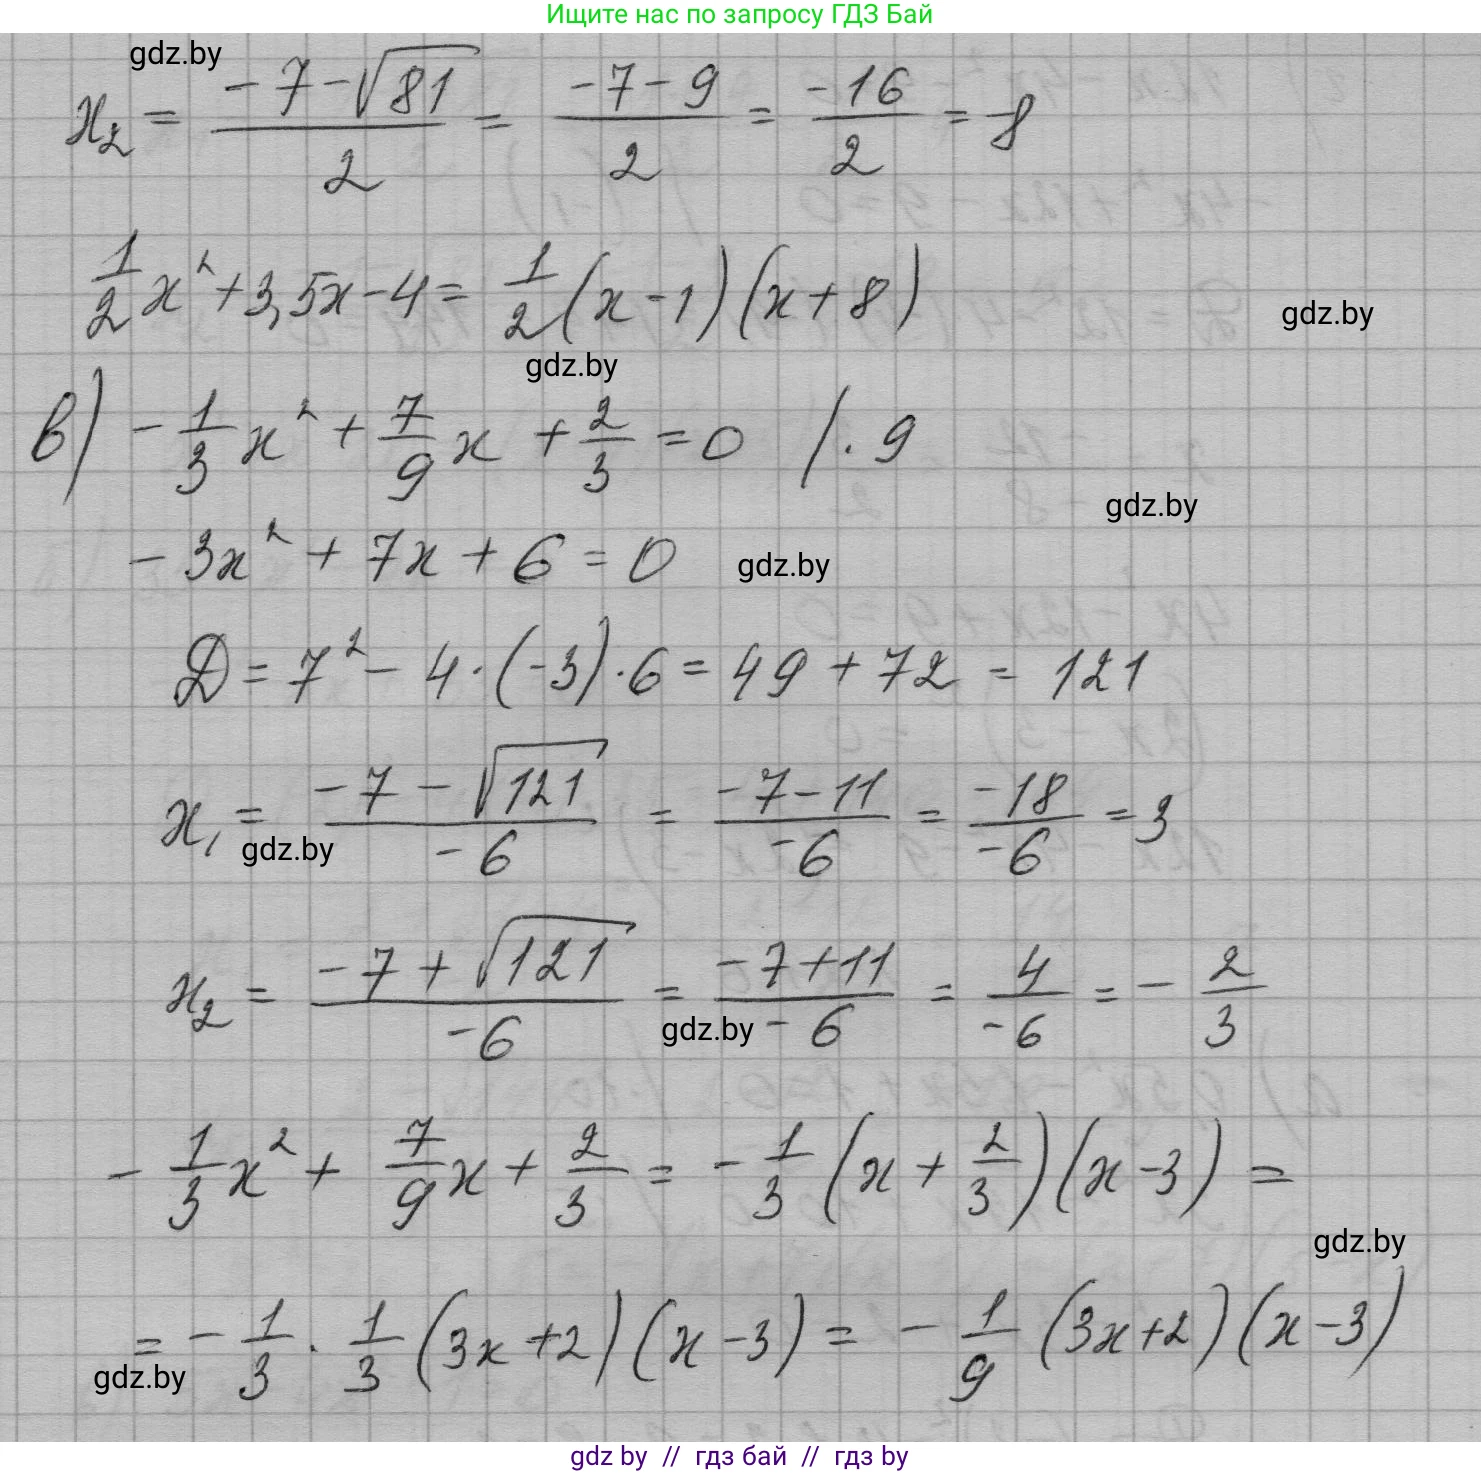 Ищите нас по запросу ГДЗ Бай
gdz.by
x₂ = (-7-√81)/2 = (-7-9)/2 = -16/2 = -8
1/2 x² + 3,5x - 4 = 1/2 (x-1)(x+8)
gdz.by
gdz.by
в) -1/3 x² + 7/9 x + 2/3 = 0 /·9
gdz.by
-3x² + 7x + 6 = 0
gdz.by
Д = 7² - 4·(-3)·6 = 49 + 72 = 121
x₁ = (-7-√121)/-6 = (-7-11)/-6 = -18/-6 = 3
gdz.by
x₂ = (-7+√121)/-6 = (-7+11)/-6 = 4/-6 = -2/3
gdz.by
-1/3 x² + 7/9 x + 2/3 = -1/3 (x + 2/3)(x-3) =
gdz.by
= -1/3 · 1/3 (3x+2)(x-3) = -1/9 (3x+2)(x-3)
gdz.by
gdz by // гдз бай // гдз by